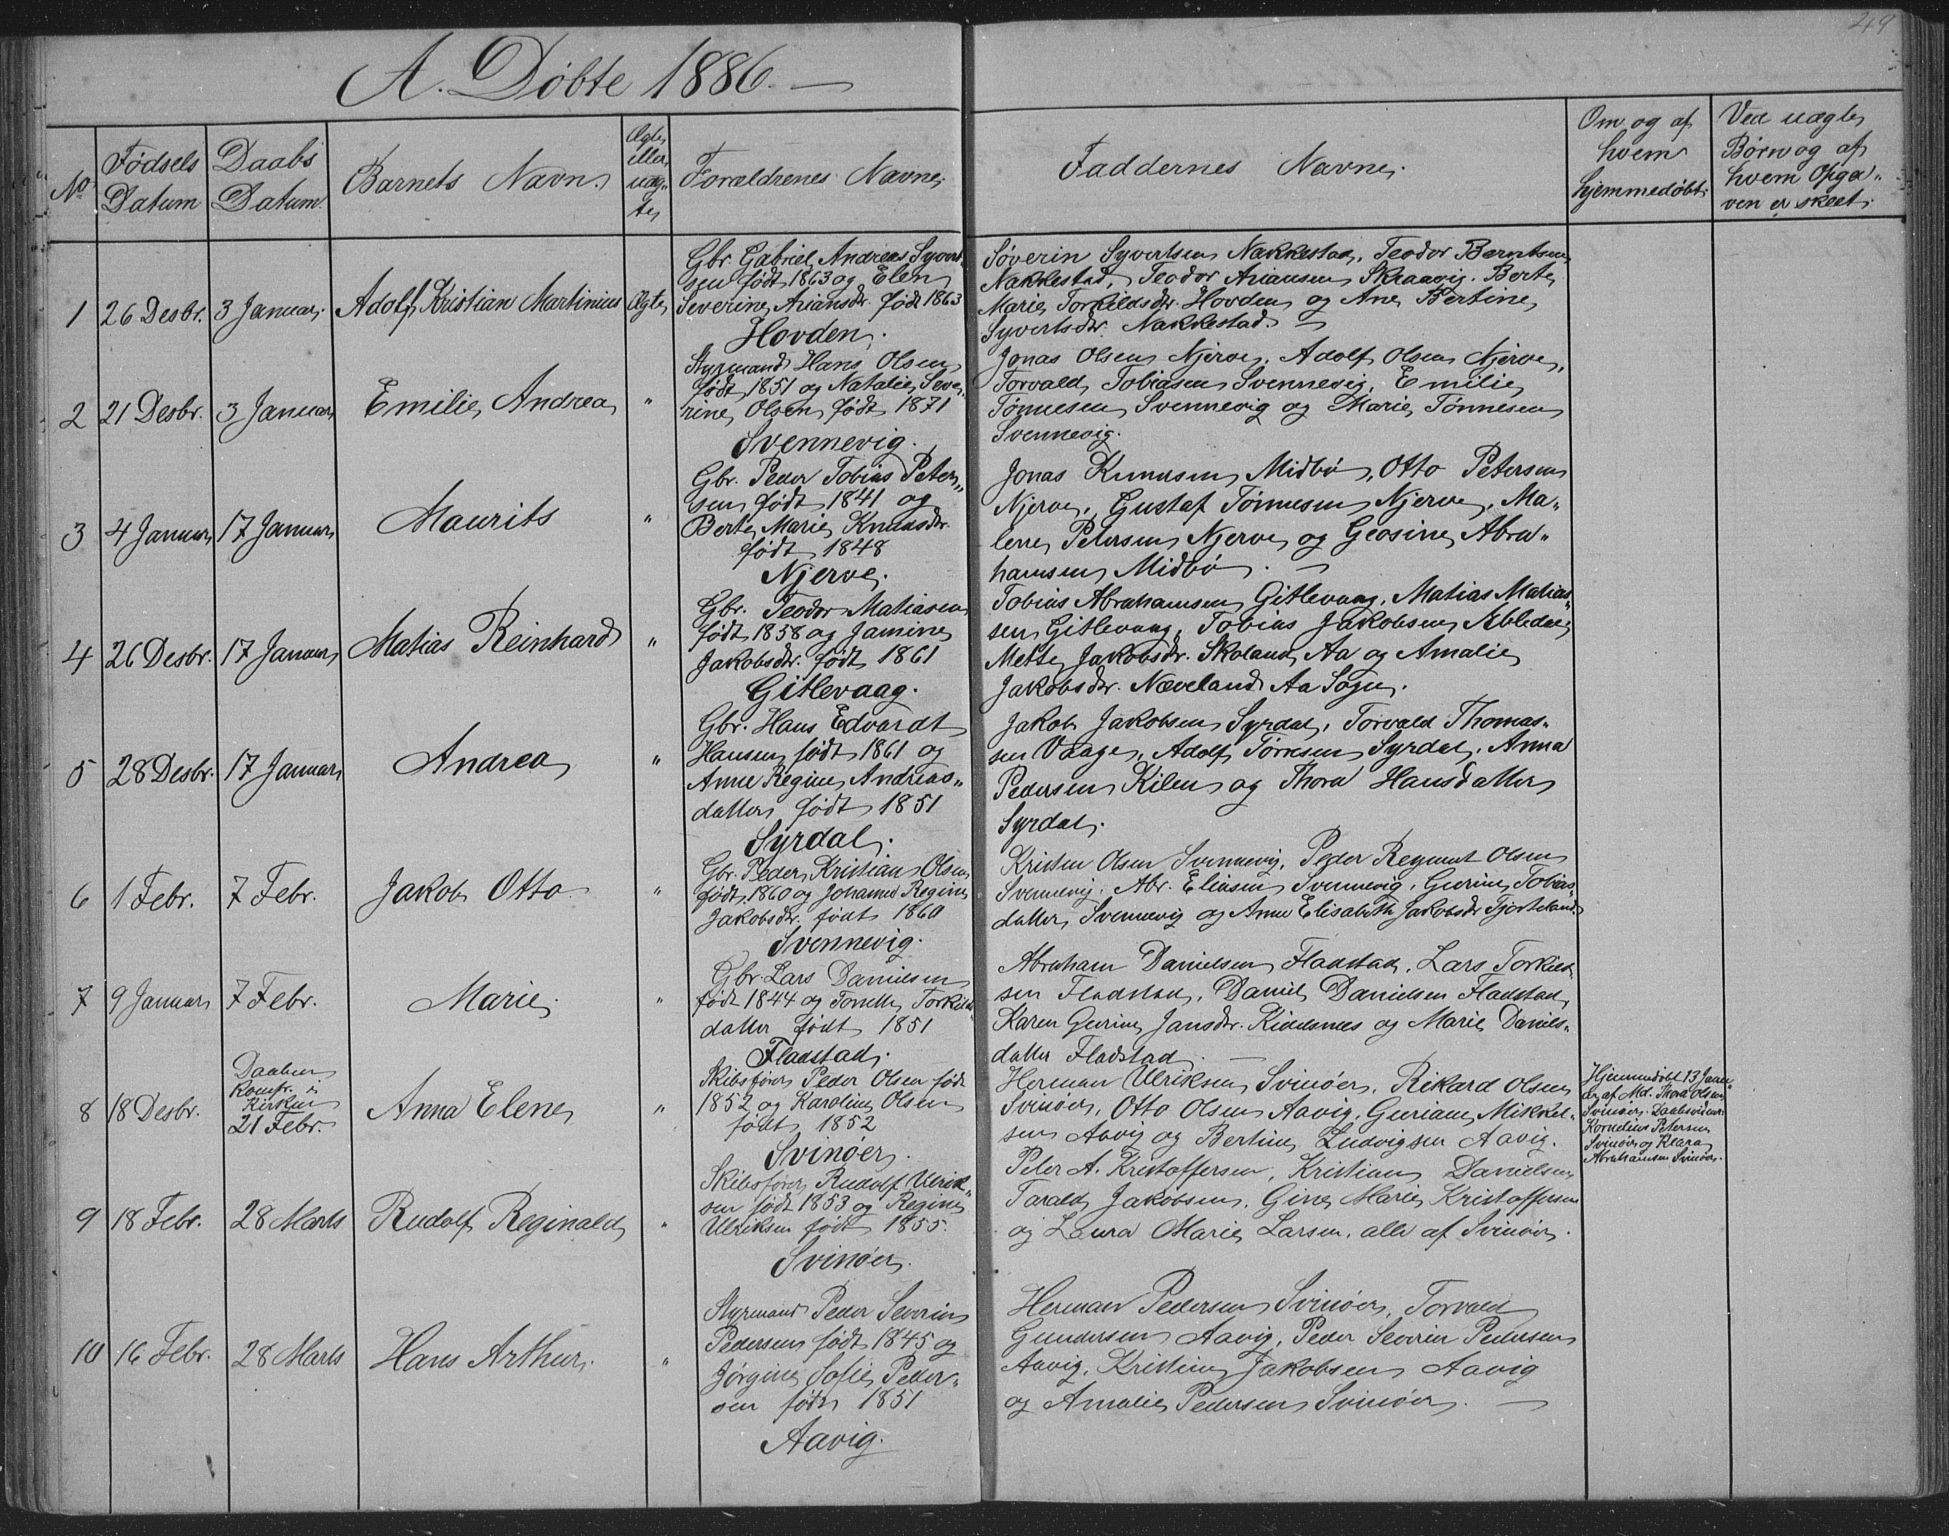 249
A. Döbte 1886.
No.
Fødsels Datum
Daabs Datum.
Barnets Navn.
Ægte eller uægte
Forældrenes Navne.
Faddernes Navne.
Om og af hvem hjemmedøbt.
Ved uægte Børn og af hvem Opgaven er skeet.
1
26 Desbr.
3 Januar.
Adolf Kristian Martinius
Ægte
Gbr. Gabriel Andreas Syvert
sen født 1863 og Elen
Severine Ariansdr. født 1863
Hovden.
Søverin Syvertsen Nakkestad, Teodor Berntsen
Nakkestad, Teodor Ariansen Skraavig. Berte
Marie Torkildsdr. Hovden og Ane Bertine
Syvertsdr. Nakkestad. —
2
21 Desbr.
3 Januar
Emilie Andrea
"
Styrmand Hans Olsen
født 1851 og Natalie Seve-
rine Olsen født 1871
Svennevig.
Jonas Olsen Njerve, Adolf Olsen Njerve,
Torvald Tobiasen Svennevig, Emilie
Tønnesen Svennevig og Marie Tønnesen
Svennevig.
3
4 Januar
17 Januar
Maurits
"
Gbr. Peder Tobias Peter„
sen født 1841 og
Berte Marie Knudsdr.
født 1848
Njerve.
Jonas Knudsen Midbø, Otto Petersen
Njerve, Gustaf Tønnesen Njerve, Ma„
lene Petersen Njerve og Geosine Abra„
hamsen Midbø. —
4
26 Desbr.
17 Januar
Matias Reinhard
"
Gbr. Teodor Matiasen
født 1858 og Jamine
Jakobsdr. født 1861
Gitlevaag.
Tobias Abrahamsen Gitlevaag, Matias Matias„
sen Gitlevaag, Tobias Jakobsen
Mette Jakobsdr. Skoland Aa og Amalie
Jakobsdr. Næveland Aa Sogn.
5
28 Desbr.
17 Januar
Andrea
"
Gbr. Hans Edvardt
Hansen født 1861 og
Anne Regine Andreas„
datter født 1851
Syrdal.
Jakob Jakobsen Syrdal, Torvald Thomas„
sen Vaage, Adolf Tørresen Syrdal, Anna
Pedersen Kilen og Thora Hansdatter
Syrdal.
6
1 Febr.
7 Febr.
Jakob Otto
"
Gbr. Peder Kristian Olsen
født 1860 og Johanne Regine
Jakobsdr. født 1860
Svennevig.
Kristen Olsen Svennevig, Peder Regmert Olsen
Svennevig. Abr. Eliasen Svennevig, Gurine Tobias
datter Svennevig og Anne Elisabeth Jakobsdr Tjorteland
7
9 Januar
7 Febr.
Marie.
"
Gbr. Lars Danielsen
født 1844 og Tonette Torkilds
datter født 1851
Fladstad.
Abraham Danielsen Fladstad, Lars Torkild
sen Fladstad, Daniel Danielsen Fladstad,
Karen Gurine Jansdr. Kidelsnes og Marie Daniels„
datter Fladstad. —
8
18 Desbr.
Daaben
Konfr. i
Kirken
21 Febr.
Anna Elene
"
Skibsfører Peder Olsen født
1852 og Karoline Olsen
født 1852
Svinøer.
Herman Ulriksen Svinøer, Rikard Olsen
Svinøer, Otto Olsen Aavig, Guriane Mikkel„
sen Aavig og Bertine Ludvigsen Aavig.
Hjemmedøbt 13 Janu
ar af Md. Thora Olsen
Svinøer. Daabsvidner:
Kornelius Petersen
Svinøer og Klara
Abrahamsen Svinøer.
9
18 Febr.
28 Marts
Rudolf Reginald
"
Skibsfører Rudolf Ulrik„
sen født 1853 og Regine
Ulriksen født 1855.
Svinøer.
Peter A. Kristoffersen, Kristian Danielsen
Tarald Jakobsen, Gine Marie Kristoffersen
og Laura Marie Larsen, alle af Svinøer.
10
16 Febr.
28 Marts
Hans Arthur.
"
Styrmand Peder Severin
Pedersen født 1845 og
Jørgine Sofie Peder„
sen født 1851
Aavig.
Herman Pedersen Svinøer, Torvald
Gundersen Aavig, Peder Severin Pedersen
Aavig, Kristine Jakobsen Aavig
og Amalie Pedersen Svinøer. —